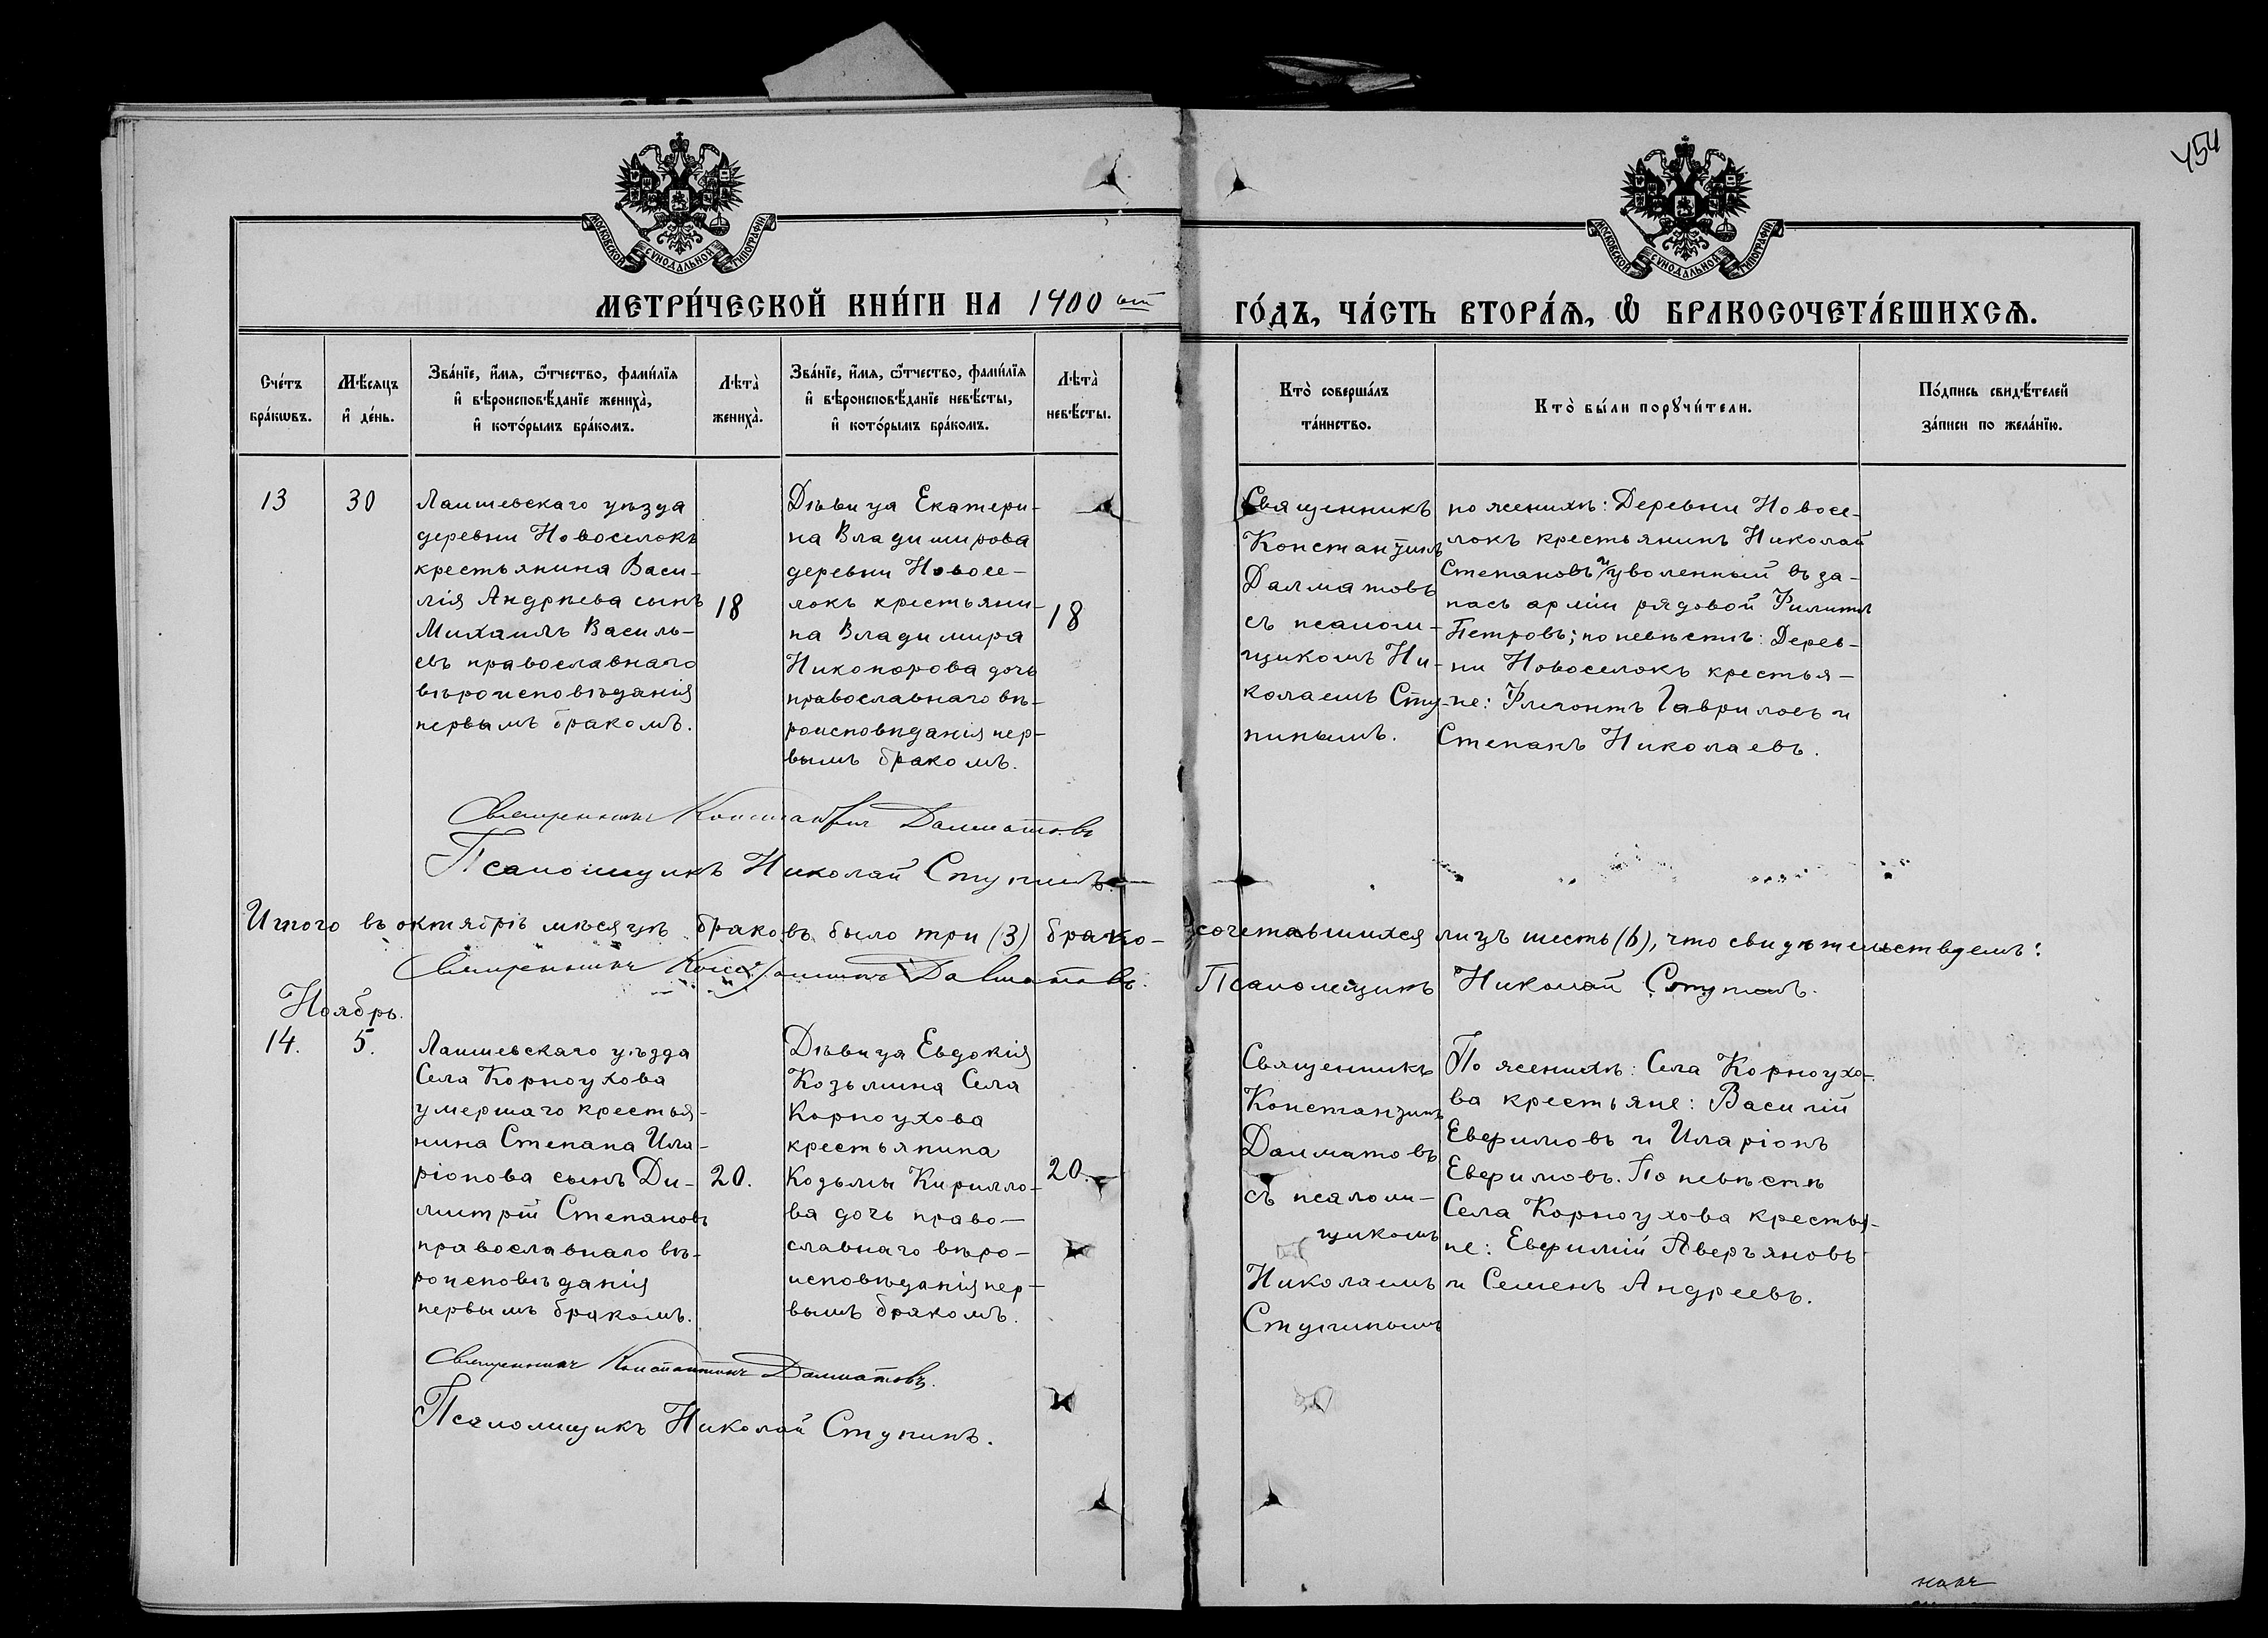 454
МОСКОВСКОЙ СУНОДАЛЬНОЙ ТИПОГРАФІИ
МОСКОВСКОЙ СУНОДАЛЬНОЙ ТИПОГРАФІИ
МЕТРИ́ЧЕСКОЙ КНИ́ГИ НА 1900 ый
ГО́ДЪ, ЧА́СТЬ ВТОРА́Ѧ, Ѿ БРАКОСОЧЕТА́ВШИХСѦ.
Сче́тъ
бра́кѡвъ.
Мѣ́сяцъ
и҆ де́нь.
Зва́нїе, и҆́мѧ, ѻ҆́тчество, фами́лїѧ
и҆ вѣроисповѣ́данїе жениха̀,
и҆ кото́рымъ бра́комъ.
Лѣта̀
жениха̀.
Зва́нїе, и҆́мѧ, ѻ҆́тчество, фами́лїѧ
и҆ вѣроисповѣ́данїе невѣ́сты,
и҆ кото́рымъ бра́комъ.
Лѣта̀
невѣ́сты.
Кто̀ соверша́лъ
та́инство.
Кто̀ бы́ли порꙋчи́тели.
По́дпись свидѣ́телей
за́писи по жела́нїю.
13
30
Лаишевскаго уѣзда
деревни Новоселокъ
крестьянина Васи-
лія Андрѣева сынъ
Михаилъ Василь-
евъ православнаго
вѣроисповѣданія
первымъ бракомъ.
18
Дѣвица Екатери-
на Владимирова
деревни Новосе-
локъ крестьяни-
на Владимира
Никонорова дочь
православнаго вѣ-
роисповѣданія пер-
вымъ бракомъ.
18
Священникъ
Константинъ
Далматовъ
съ псалом-
щикомъ Ни-
колаемъ Сту-
пинымъ.
по женихѣ: Деревни Новосе-
локъ крестьянинъ Николай
Степановъ и уволенный въ за-
пасъ арміи рядовой Филиппъ
Петровъ; по невѣстѣ: Дерев-
ни Новоселокъ крестья-
не: Флегонтъ Гавриловъ и
Степанъ Николаевъ.
Священникъ Константинъ Далматовъ
Псаломщикъ Николай Ступинъ.
Итого въ октябрѣ мѣсяцѣ браковъ было три (3) брако-
сочетавшихся лицъ шесть (6), что свидѣтельствуемъ:
Священникъ Константинъ Далматовъ.
Псаломщикъ Николай Ступинъ.
Ноябрь.
14.
5.
Лаишевскаго уѣзда
Села Корноухова
умершаго крестья-
нина Степана Ила-
ріонова сынъ Ди-
митрій Степановъ
православнаго вѣ-
роисповѣданія
первымъ бракомъ.
20.
Дѣвица Евдокія
Козьмина Села
Корноухова
крестьянина
Козьмы Кирилло-
ва дочь право-
славнаго вѣро-
исповѣданія пер-
вымъ бракомъ.
20.
Священникъ
Константинъ
Далматовъ
съ псалом-
щикомъ
Николаемъ
Ступинымъ
По женихѣ: Села Корноухо-
ва крестьяне: Василій
Евфимовъ и Иларіонъ
Евфимовъ. По невѣстѣ
Села Корноухова крестья-
не: Евфимій Аверъяновъ
и Семенъ Андреевъ.
Священникъ Константинъ Далматовъ.
Псаломщикъ Николай Ступинъ.